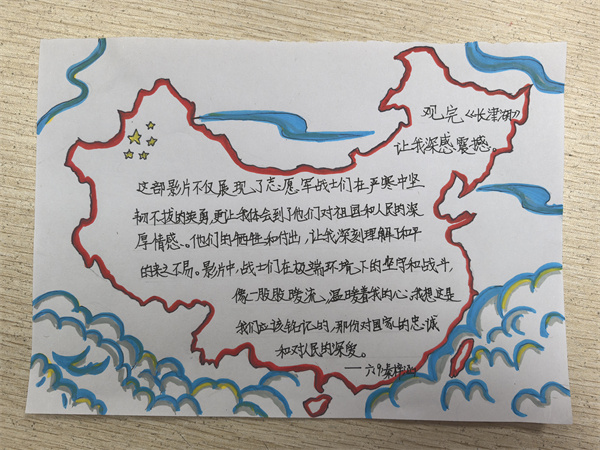 观完《长津湖》
让我深感震撼。
这部影片不仅展现了志愿军战士们在严寒中坚
韧不拔的英勇,更让我体会到了他们对祖国和人民的深
厚情感。他们的牺牲和付出,让我深刻理解了和平
的来之不易。影片中,战士们在极端环境下的坚守和战斗,
像一股股暖流,温暖着我的心,我想这是
我们应该铭记的,那份对国家的忠诚
和对人民的深爱。
——六9秦